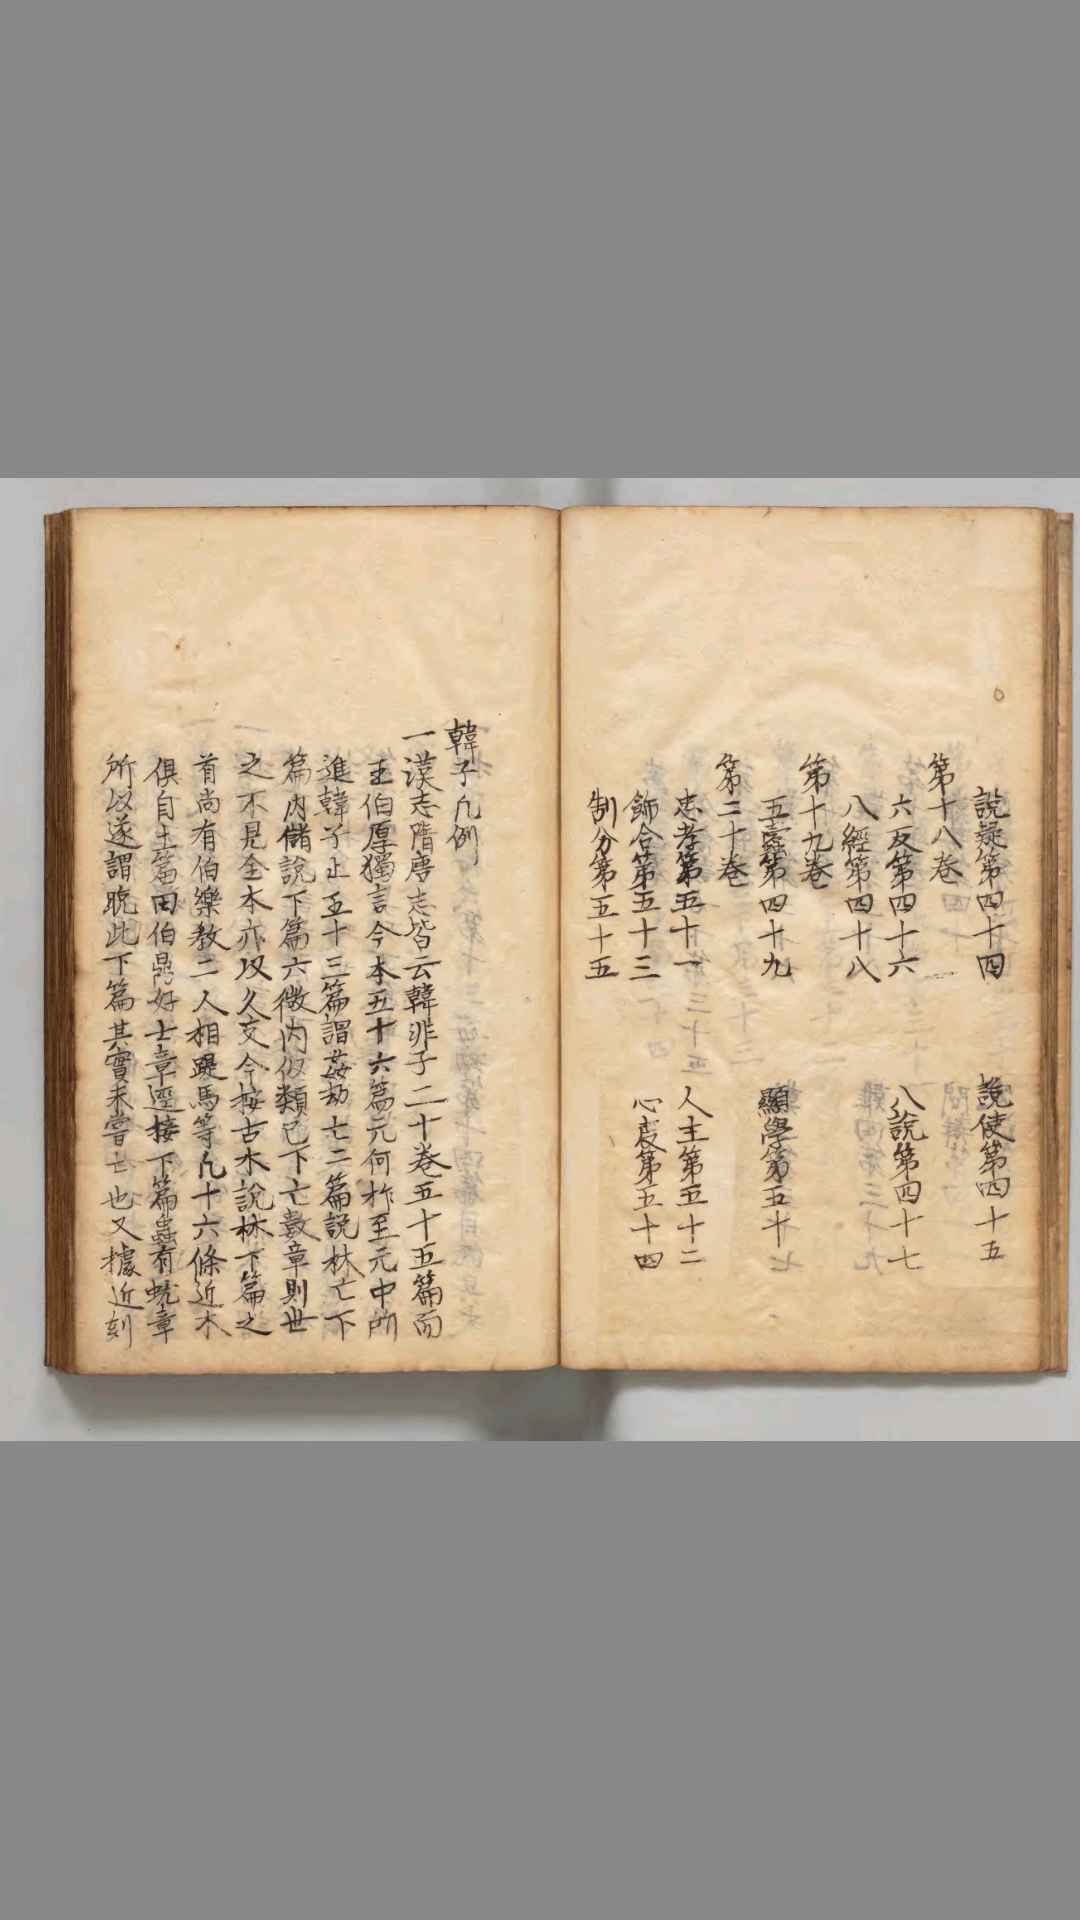 說疑第四十四　詭使第四十五
第十八卷
六反第四十六　八說第四十七
八經第四十八
第十九卷
五蠹第四十九　顯學第五十
第二十卷
忠孝第五十一　人主第五十二
飾令第五十三　心度第五十四
制分第五十五
韓子凡例
一漢志隋唐志皆云韓非子二十卷五十五篇而
王伯厚獨言今本五十六篇元何犿至元中所
進韓子止五十三篇謂姦劫亡二篇說林亡下
篇內儲說下篇六微內似類已下亡數章則世
之不見全本亦以久交今按古本說林下篇之
首尚有伯樂教二人相踶馬等凡十六條近本
俱自上篇田伯鼎好士章逕接下篇蟲有蚘章
所以遂謂脫此下篇其實未嘗亡也又據近刻